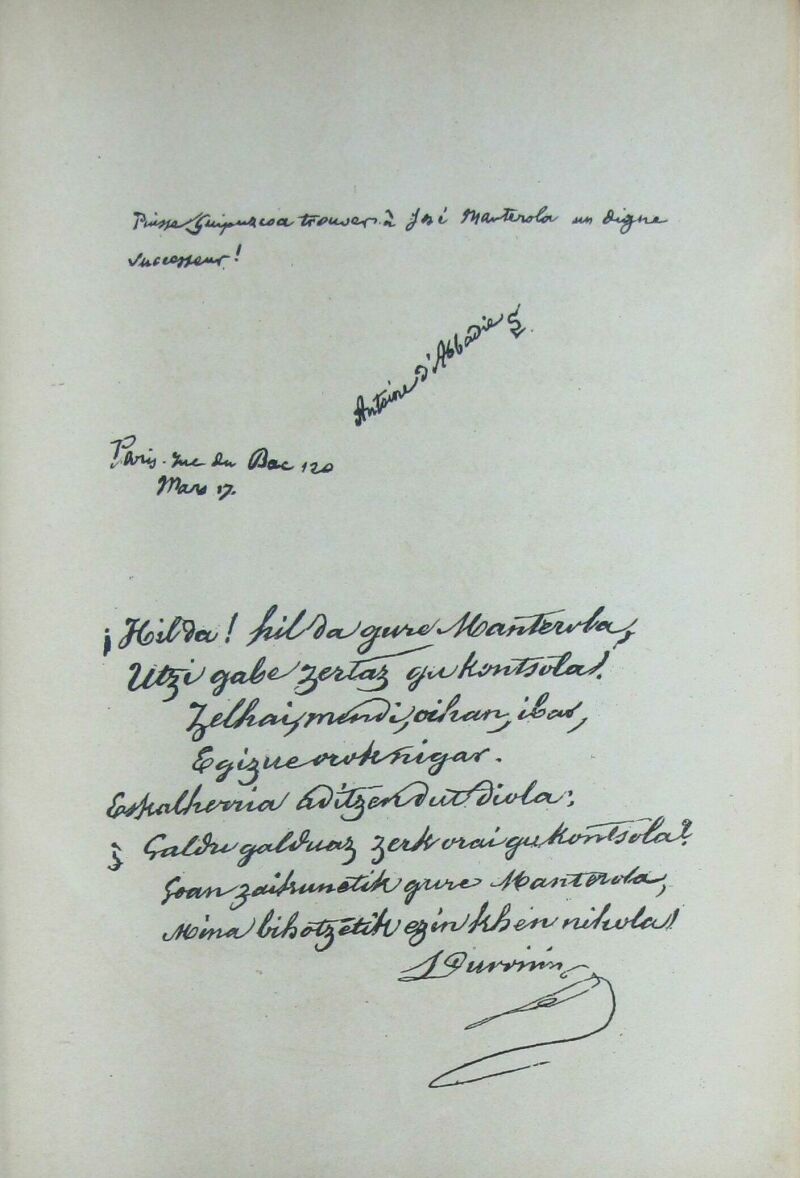 Puisse Guipuzcoa trouver à José Manterola un digne
successeur!
Antoine d'Abbadie
Paris. rue du Bac 120
Mars 17.
¡Hil da! hil da gure Manterola,
Utzi gabe zertaz gu kontsola!
Zelhai, mendi, oihan, ibar,
Egizue orok nigar.
Eskalherria aditzen dut diola:
¿Galdu galduaz zerk orai gu kontsola?
Goan zaikunetik gure Manterola,
Mina bihotzetik ezin khen nikola!